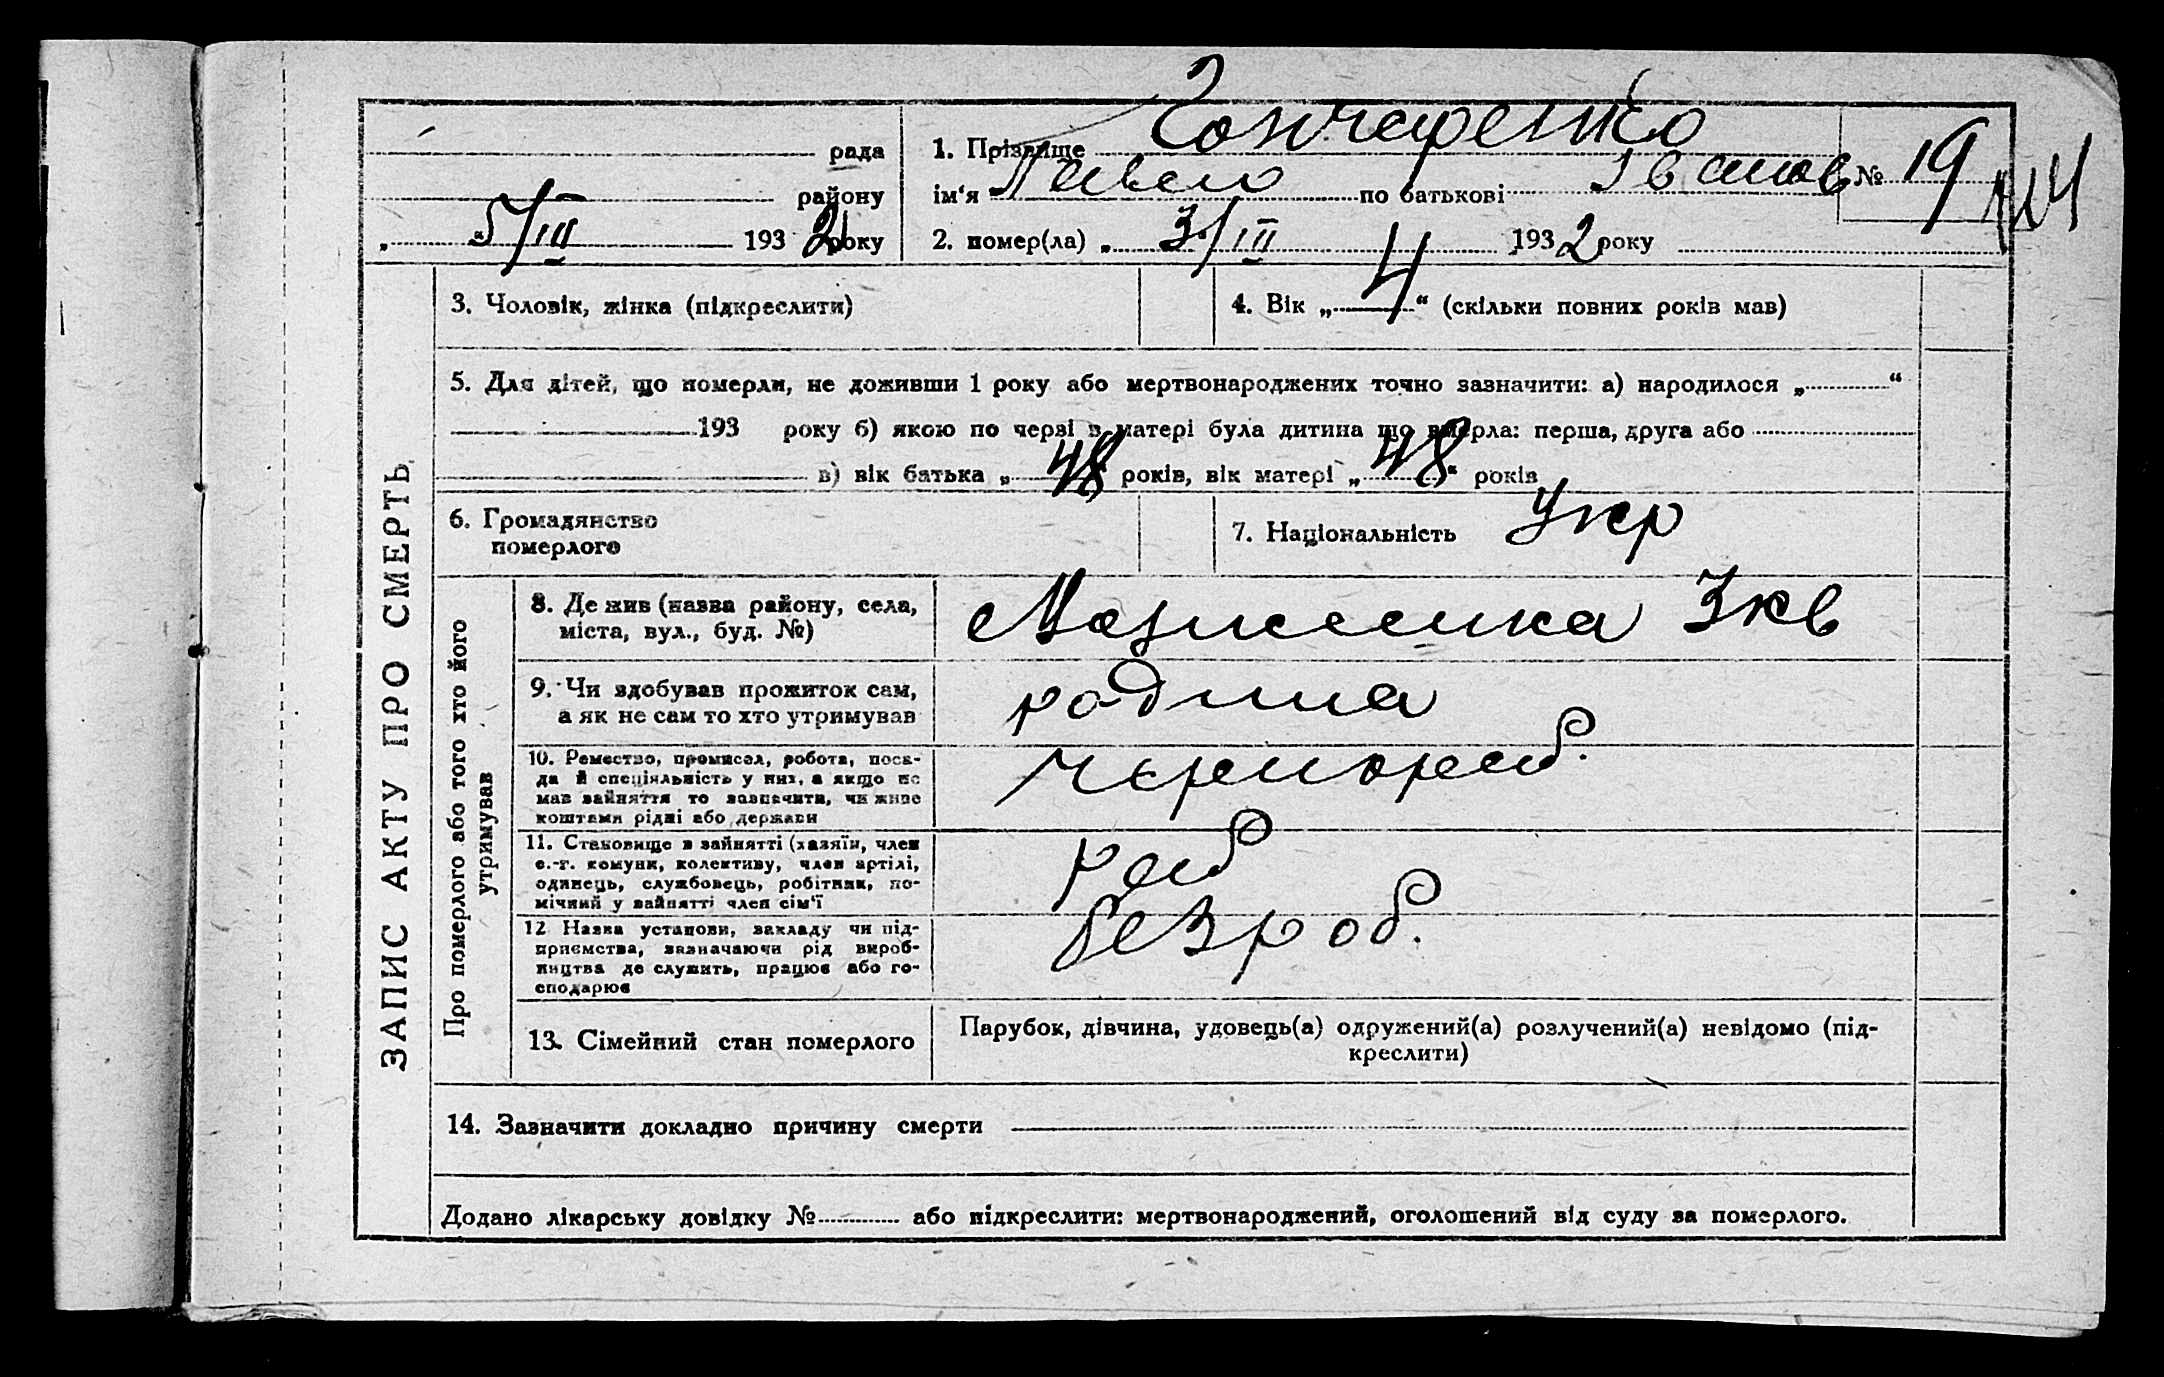 рада
району
„ 5/III 1932 року
1. Прізвище Гончаренко
ім‘я Павло по батькові Іванов № 19
2. помер(ла) „ 3/III 1932 року
ЗАПИС АКТУ ПРО СМЕРТЬ
3. Чоловік, жінка (підкреслити)
4. Вік „ 4 “ (скільки повних років мав)
5. Для дітей, що померли, не доживши 1 року або мертвонароджених точно зазначити: а) народилося „ “
193 року б) якою по черзі в матері була дитина що вмерла: перша, друга або
в) вік батька „ 48 років, вік матері „ 48 “ років
6. Громадянство
померлого
7. Національність Укр
Про померлого або того хто його
утримував
8. Де жив (назва району, села,
міста, вул., буд. №)
3 кв
9. Чи здобував прожиток сам,
а як не сам то хто утримував
родина
10. Ремество, промисел, робота, поса-
да й спеціяльність у них, а якщо не
мав зайняття то зазначити, чи живе
коштами рідні або держави
чернороб.
11. Становище в зайнятті (хазяїн, член
с.-г. комуни, колективу, член артілі,
одинець, службовець, робітник, по-
мічний у зайнятті член сім'ї
роб
12 Назва установи, закладу чи під-
приємства, зазначаючи рід вироб-
ництва де служить, працює або го-
сподарює
безроб.
13. Сімейний стан померлого
Парубок, дівчина, удовець(а) одружений(а) розлучений(а) невідомо (під-
креслити)
14. Зазначити докладно причину смерти
Додано лікарську довідку № або підкреслити: мертвонароджений, оголошений від суду за померлого.